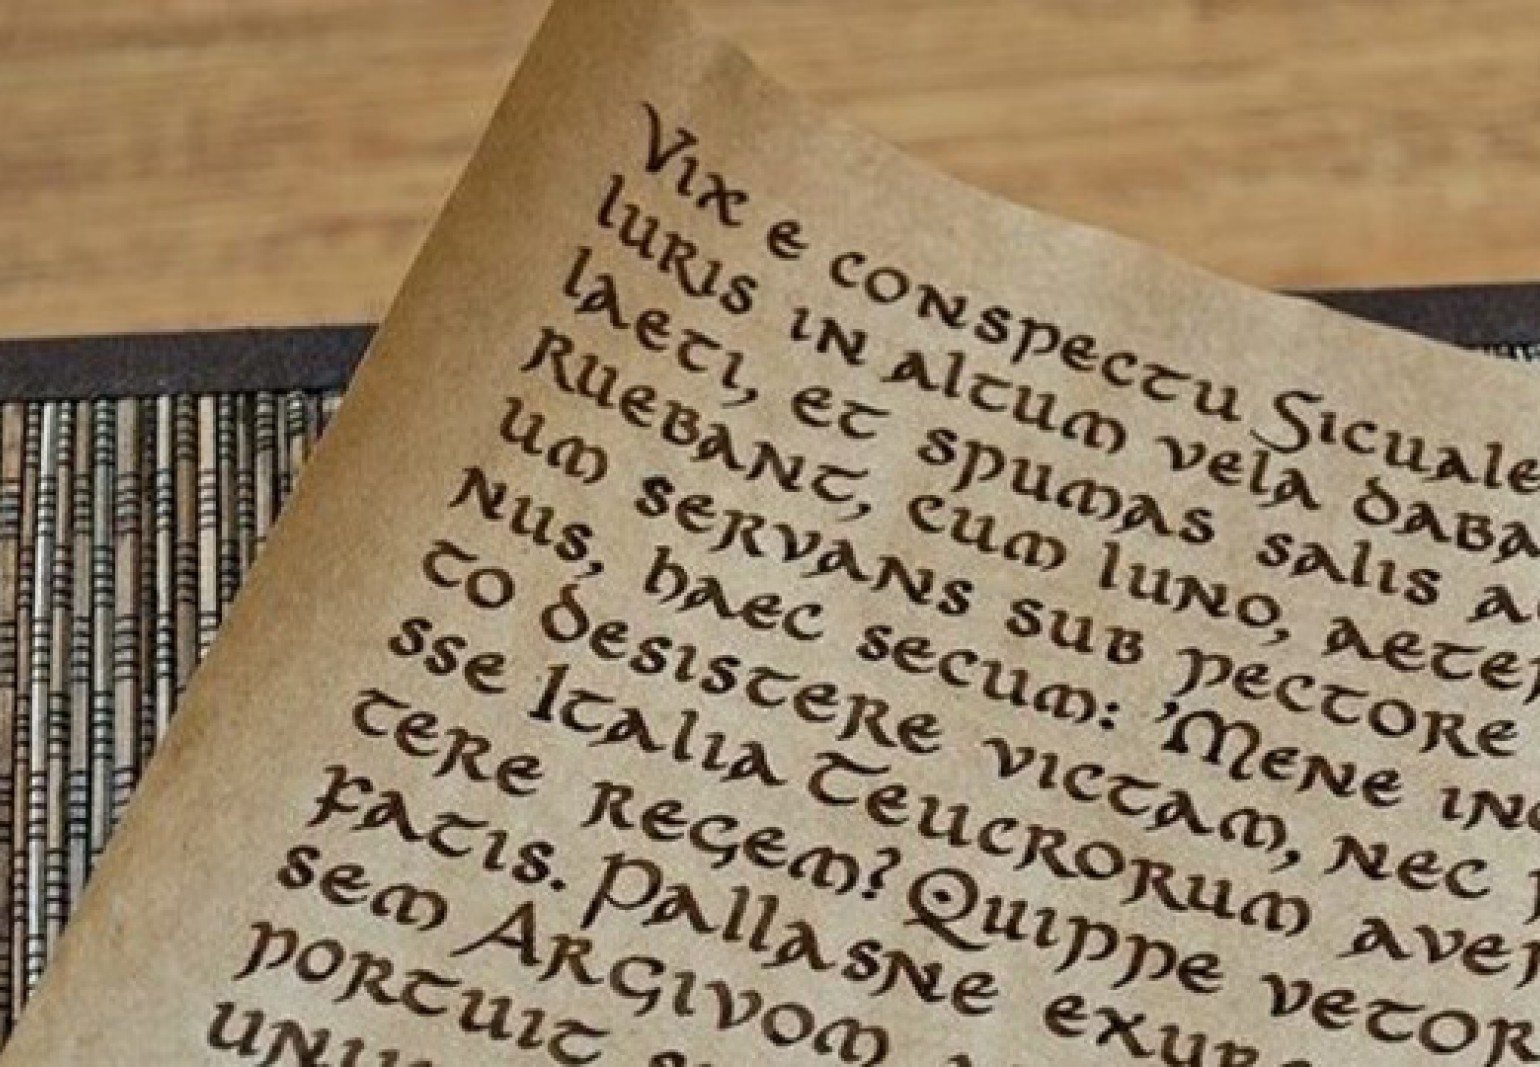 Vix e conspectu Sicuale
luris in altum vela daba
laeti, et spumas salis a
ruebant, cum Iuno, aeter
um servans sub pectore
nus, haec secum: 'Mene inc
to desistere victam, nec
sse Italia Teucrorum aver
tere regem? Quippe vetor
fatis. Pallasne exur
sem Argivom
portuit